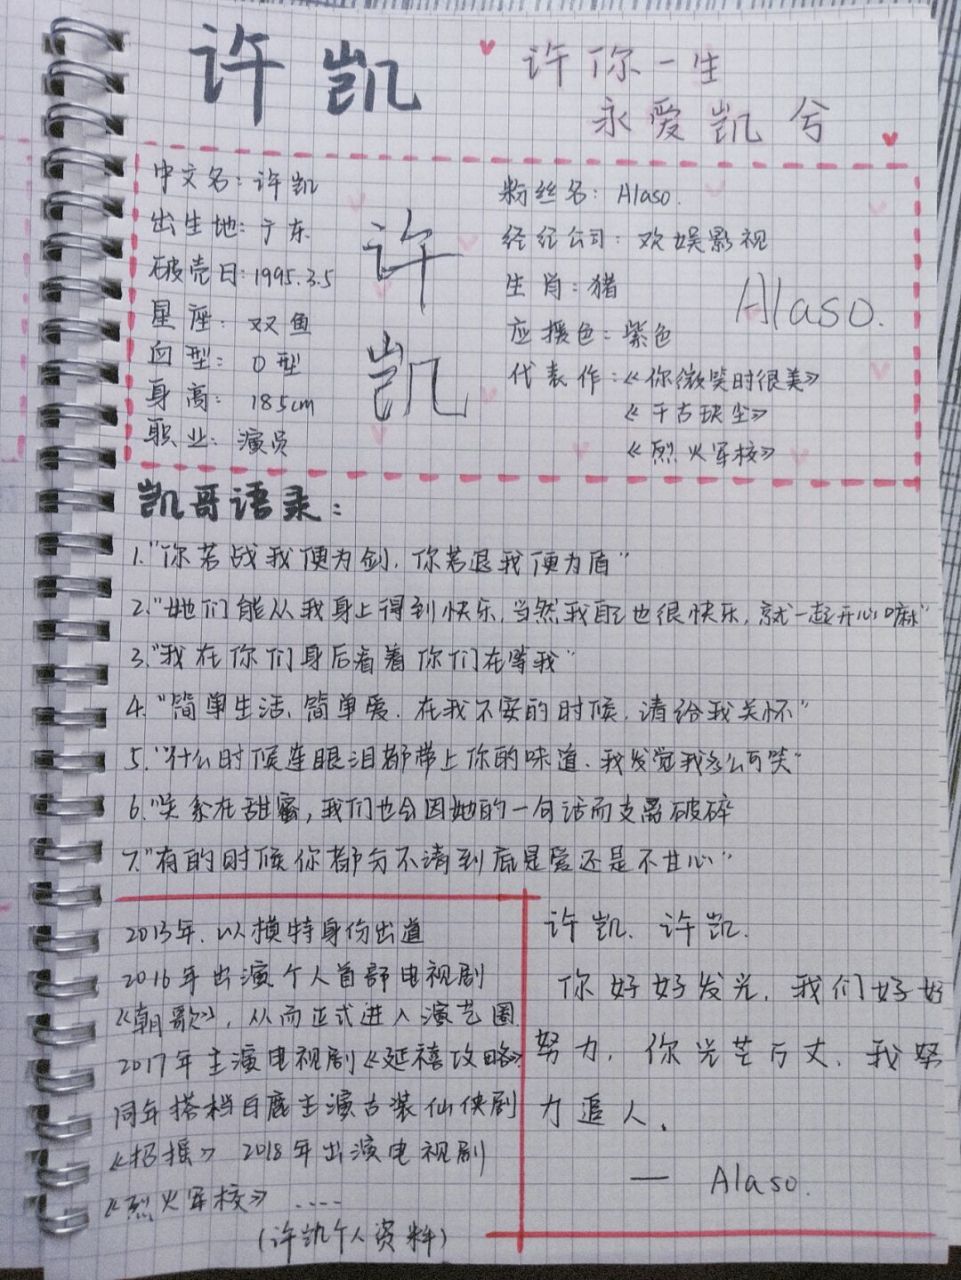 许凯
许你一生
永爱凯兮
中文名：许凯
出生地：广东
破壳日：1995.3.5
星座：双鱼
血型：O型
身高：185cm
职业：演员
许凯
粉丝名：Alaso.
经纪公司：欢娱影视
生肖：猪
应援色：紫色
代表作：《你微笑时很美》
《千古玦尘》
《烈火军校》
Alaso.
凯哥语录：
1."你若战我便为剑，你若退我便为盾"
2."她们能从我身上得到快乐，当然我自己也很快乐，就一起开心嘛"
3."我在你们身后看着你们在等我"
4."简单生活、简单爱．在我不安的时候，请给我关怀"
5."什么时候连眼泪都带上你的味道、我发觉我多么可笑"
6."关系在甜蜜，我们也会因她的一句话而支离破碎
7."有的时候你都分不清到底是爱还是不甘心"
2013年．以模特身份出道
2016年出演个人首部电视剧
《朝歌》，从而正式进入演艺圈
2017年主演电视剧《延禧攻略》
同年搭档白鹿主演古装仙侠剧
《招摇》 2018年出演电视剧
《烈火军校》……
(许凯个人资料)
许凯．许凯．
你好好发光，我们好好
努力，你光芒万丈．我努
力追人．
— Alaso.